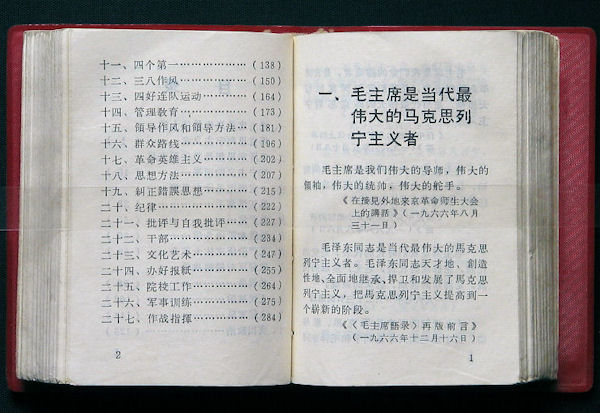 十一、四个第一………………(138)
十二、三八作风………………(150)
十三、四好连队运动…………(164)
十四、管理教育………………(173)
十五、领导作风和领导方法…(181)
十六、群众路线………………(196)
十七、革命英雄主义…………(202)
十八、思想方法………………(207)
十九、糾正錯誤思想…………(215)
二十、纪律……………………(222)
二十一、批评与自我批评……(227)
二十二、干部…………………(234)
二十三、文化艺术……………(247)
二十四、办好报紙……………(255)
二十五、院校工作……………(264)
二十六、军事训练……………(275)
二十七、作战指揮……………(284)
2
一、毛主席是当代最
伟大的马克思列
宁主义者
毛主席是我们伟大的导师，伟大的
領袖，伟大的统帅，伟大的舵手。
《在接見外地来京革命师生大会
上的講話》(一九六六年八月
三十一日)
毛泽东同志是当代最伟大的馬克思
列宁主义者。毛泽东同志天才地、創造
性地、全面地继承、捍卫和发展了馬克思
列宁主义，把馬克思列宁主义提高到一
个崭新的阶段。
《〈毛主席語录〉再版前言》
(一九六六年十二月十六日)
1